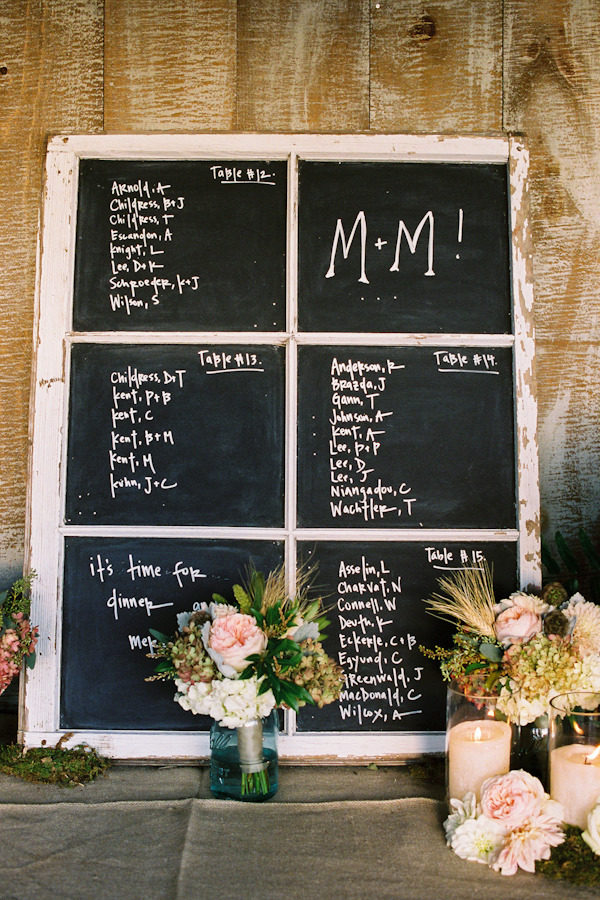 Table #12.
Arnold, A
Childress, B+J
Childress, T
Escandon, A
Knight, L
Lee, D+K
Schroeder, K+J
Wilson, S
M+M!
Table #13.
Childress, D+T
Kent, P+B
Kent, C
Kent, B+M
Kent, M
Kuhn, J+C
Table #14.
Anderson, R
Brazda, J
Gann, T
Johnson, A
Kent, A
Lee, P+P
Lee, D
Lee, J
Niangadou, C
Wachtler, T
it's time for
dinner
Table #15.
Asselin, L
Charvat, N
Connell, W
Deuth, K
Eckerle, C+B
Egyund, C
Greenwald, J
MacDonald, C
Wilcox, A